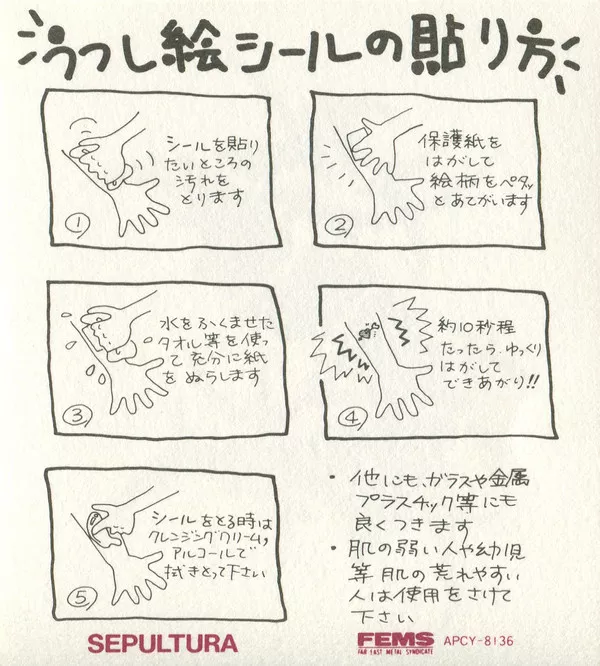 うつし絵シールの貼り方
シールを貼り
たいところの
汚れを
とります
①
保護紙を
はがして
絵柄をペタッ
とあてがいます
②
水をふくませた
タオル等を使っ
て充分に紙
をぬらします
③
約10秒程
たったら、ゆっくり
はがして
できあがり!!
④
シールをとる時は
クレンジングクリーム,
アルコールで
拭きとって下さい
⑤
・他にも、ガラスや金属
プラスチック等にも
良くつきます
・肌の弱い人や幼児
等肌の荒れやすい
人は使用をさけて
下さい
SEPULTURA
FEMS APCY-8136
FAR EAST METAL SYNDICATE